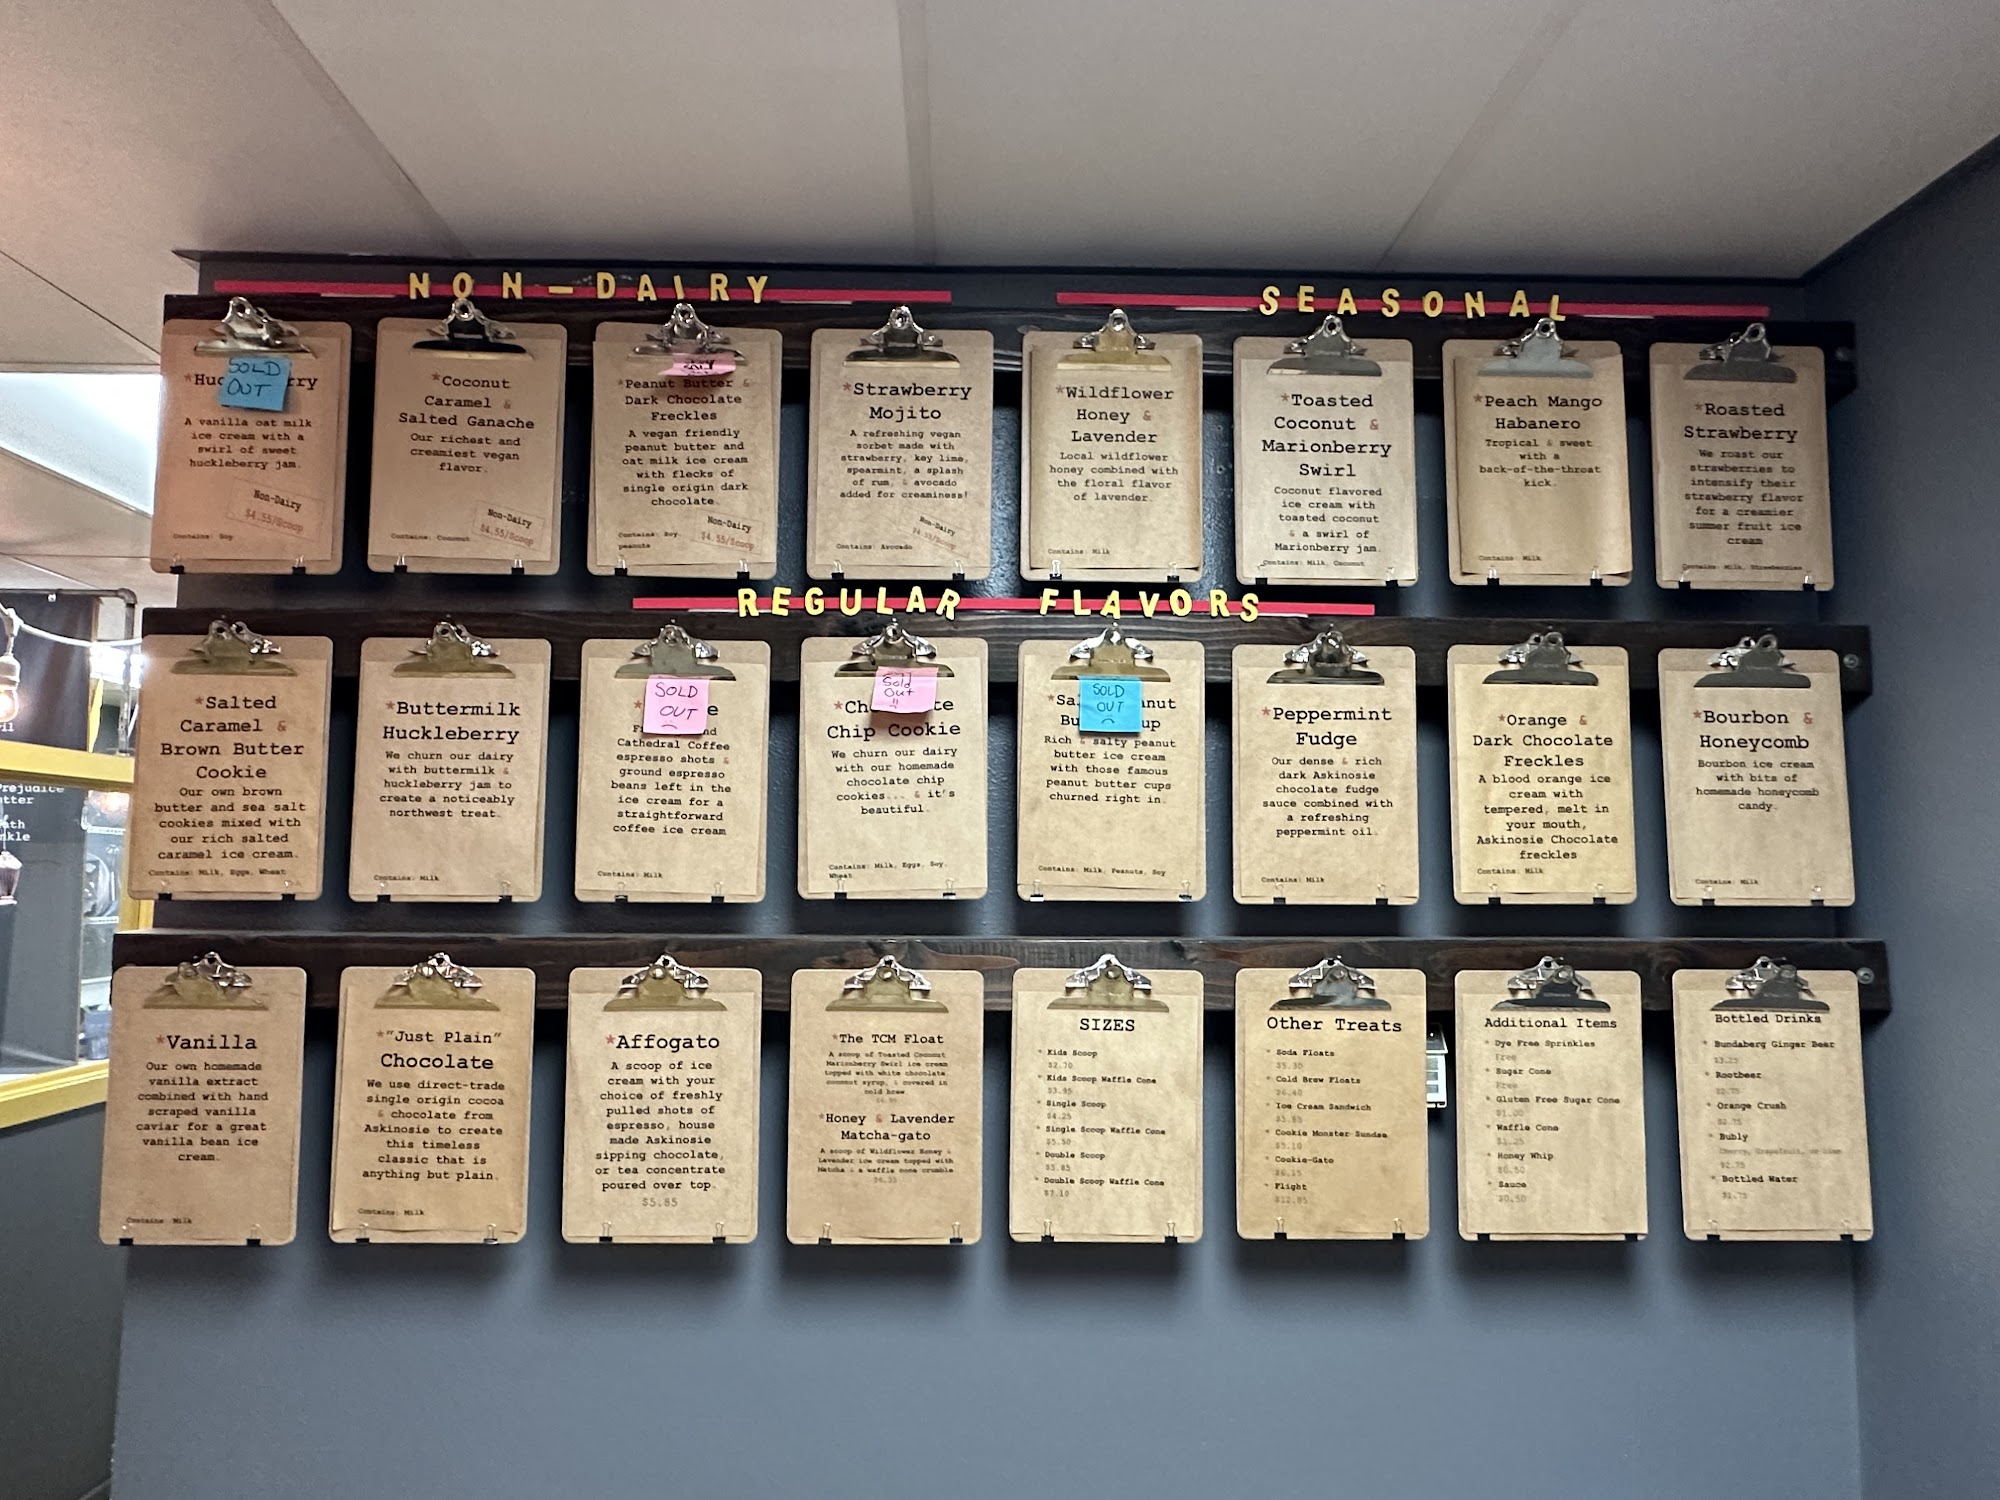 NON-DAIRY
SEASONAL
SOLD
OUT
A vanilla oat milk
ice cream with a
swirl of sweet
huckleberry jam.
Non-Dairy
$4.55/Scoop
Contains: Soy
*Coconut
Caramel &
Salted Ganache
Our richest and
creamiest vegan
flavor.
Non-Dairy
$4.55/Scoop
Contains: Coconut
*Peanut Butter &
Dark Chocolate
Freckles
A vegan friendly
peanut butter and
oat milk ice cream
with flecks of
single origin dark
chocolate.
Non-Dairy
$4.55/Scoop
Contains: Soy,
peanuts
*Strawberry
Mojito
A refreshing vegan
sorbet made with
strawberry, key lime,
spearmint, a splash
of rum, & avocado
added for creaminess!
Non-Dairy
$4.55/Scoop
Contains: Avocado
*Wildflower
Honey &
Lavender
Local wildflower
honey combined with
the floral flavor
of lavender.
Contains: Milk
*Toasted
Coconut &
Marionberry
Swirl
Coconut flavored
ice cream with
toasted coconut
& a swirl of
Marionberry jam.
Contains: Milk, Coconut
*Peach Mango
Habanero
Tropical & sweet
with a
back-of-the-throat
kick.
Contains: Milk
*Roasted
Strawberry
We roast our
strawberries to
intensify their
strawberry flavor
for a creamier
summer fruit ice
cream
Contains: Milk, Strawberries
REGULAR FLAVORS
*Salted
Caramel &
Brown Butter
Cookie
Our own brown
butter and sea salt
cookies mixed with
our rich salted
caramel ice cream.
Contains: Milk, Eggs, Wheat
*Buttermilk
Huckleberry
We churn our dairy
with buttermilk &
huckleberry jam to
create a noticeably
northwest treat.
Contains: Milk
SOLD
OUT
Cathedral Coffee
espresso shots &
ground espresso
beans left in the
ice cream for a
straightforward
coffee ice cream
Contains: Milk
Sold
Out
!!
Chip Cookie
We churn our dairy
with our homemade
chocolate chip
cookies... & it's
beautiful.
Contains: Milk, Eggs, Soy,
Wheat
SOLD
OUT
Rich & salty peanut
butter ice cream
with those famous
peanut butter cups
churned right in.
Contains: Milk, Peanuts, Soy
*Peppermint
Fudge
Our dense & rich
dark Askinosie
chocolate fudge
sauce combined with
a refreshing
peppermint oil.
Contains: Milk
*Orange &
Dark Chocolate
Freckles
A blood orange ice
cream with
tempered, melt in
your mouth,
Askinosie Chocolate
freckles
Contains: Milk
*Bourbon &
Honeycomb
Bourbon ice cream
with bits of
homemade honeycomb
candy.
Contains: Milk
*Vanilla
Our own homemade
vanilla extract
combined with hand
scraped vanilla
caviar for a great
vanilla bean ice
cream.
Contains: Milk
*"Just Plain"
Chocolate
We use direct-trade
single origin cocoa
& chocolate from
Askinosie to create
this timeless
classic that is
anything but plain.
Contains: Milk
*Affogato
A scoop of ice
cream with your
choice of freshly
pulled shots of
espresso, house
made Askinosie
sipping chocolate,
or tea concentrate
poured over top.
$5.85
*The TCM Float
A scoop of Toasted Coconut
Marionberry Swirl ice cream
topped with white chocolate,
coconut syrup, & covered in
cold brew.
*Honey & Lavender
Matcha-gato
A scoop of Wildflower Honey &
Lavender ice cream topped with
Matcha & a waffle cone crumble
SIZES
* Kids Scoop
$2.70
* Kids Scoop Waffle Cone
$3.95
* Single Scoop
$4.25
* Single Scoop Waffle Cone
$5.50
* Double Scoop
$5.85
* Double Scoop Waffle Cone
$7.10
Other Treats
* Soda Floats
$5.30
* Cold Brew Floats
* Ice Cream Sandwich
* Cookie Monster Sundae
* Cookie-Gato
* Flight
$12.85
Additional Items
* Dye Free Sprinkles
Free
* Sugar Cone
Free
* Gluten Free Sugar Cone
$1.00
* Waffle Cone
$1.25
* Honey Whip
$0.50
* Sauce
$0.50
Bottled Drinks
* Bundaberg Ginger Beer
$3.25
* Rootbeer
$2.75
* Orange Crush
$2.75
* Bubly
Cherry, Grapefruit, or Lime
$2.75
* Bottled Water
$1.75